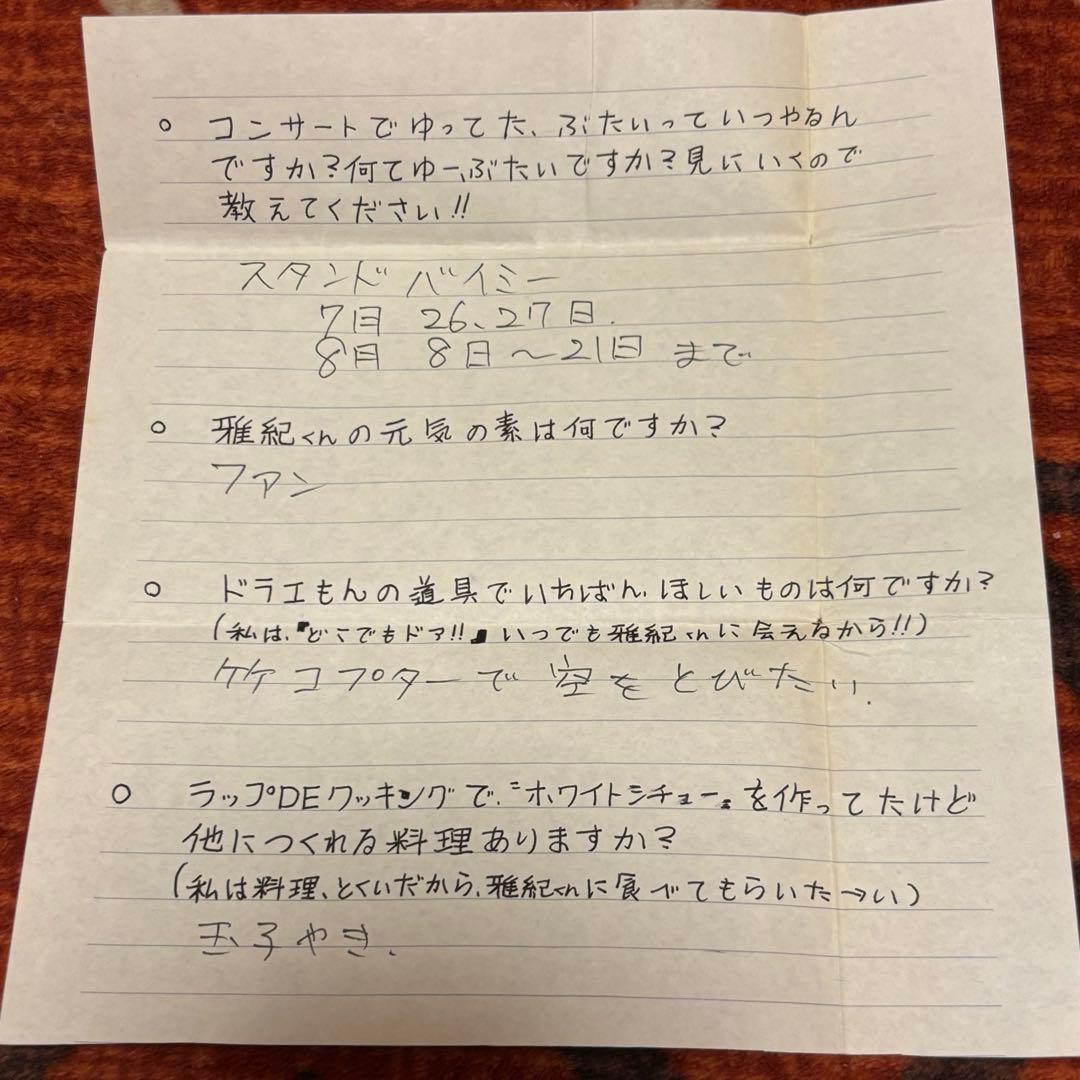 ○ コンサートでゆってた、ぶたいっていつやるん
ですか?何てゆーぶたいですか?見にいくので
教えてください!!
スタンド バイミー
7月 26、27日.
8月 8日〜21日 まで
○ 雅紀くんの元気の素は何ですか?
ファン
○ ドラエもんの道具でいちばん、ほしいものは何ですか?
(私は、『どこでもドア!!』いつでも雅紀くんに会えるから!!)
竹コプターで 空を とびたい.
○ ラップDEクッキングで、『ホワイトシチュー』を作ってたけど
他につくれる料理ありますか?
(私は料理、とくいだから、雅紀くんに食べてもらいた→い)
玉子やき.